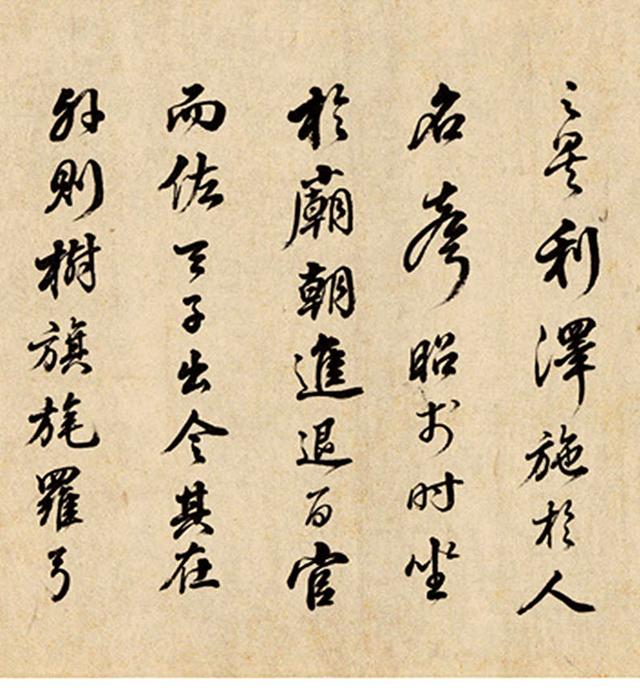 之矣利澤施於人
名声昭于时坐
於廟朝進退百官
而佐天子出令其在
外則樹旗旄羅弓